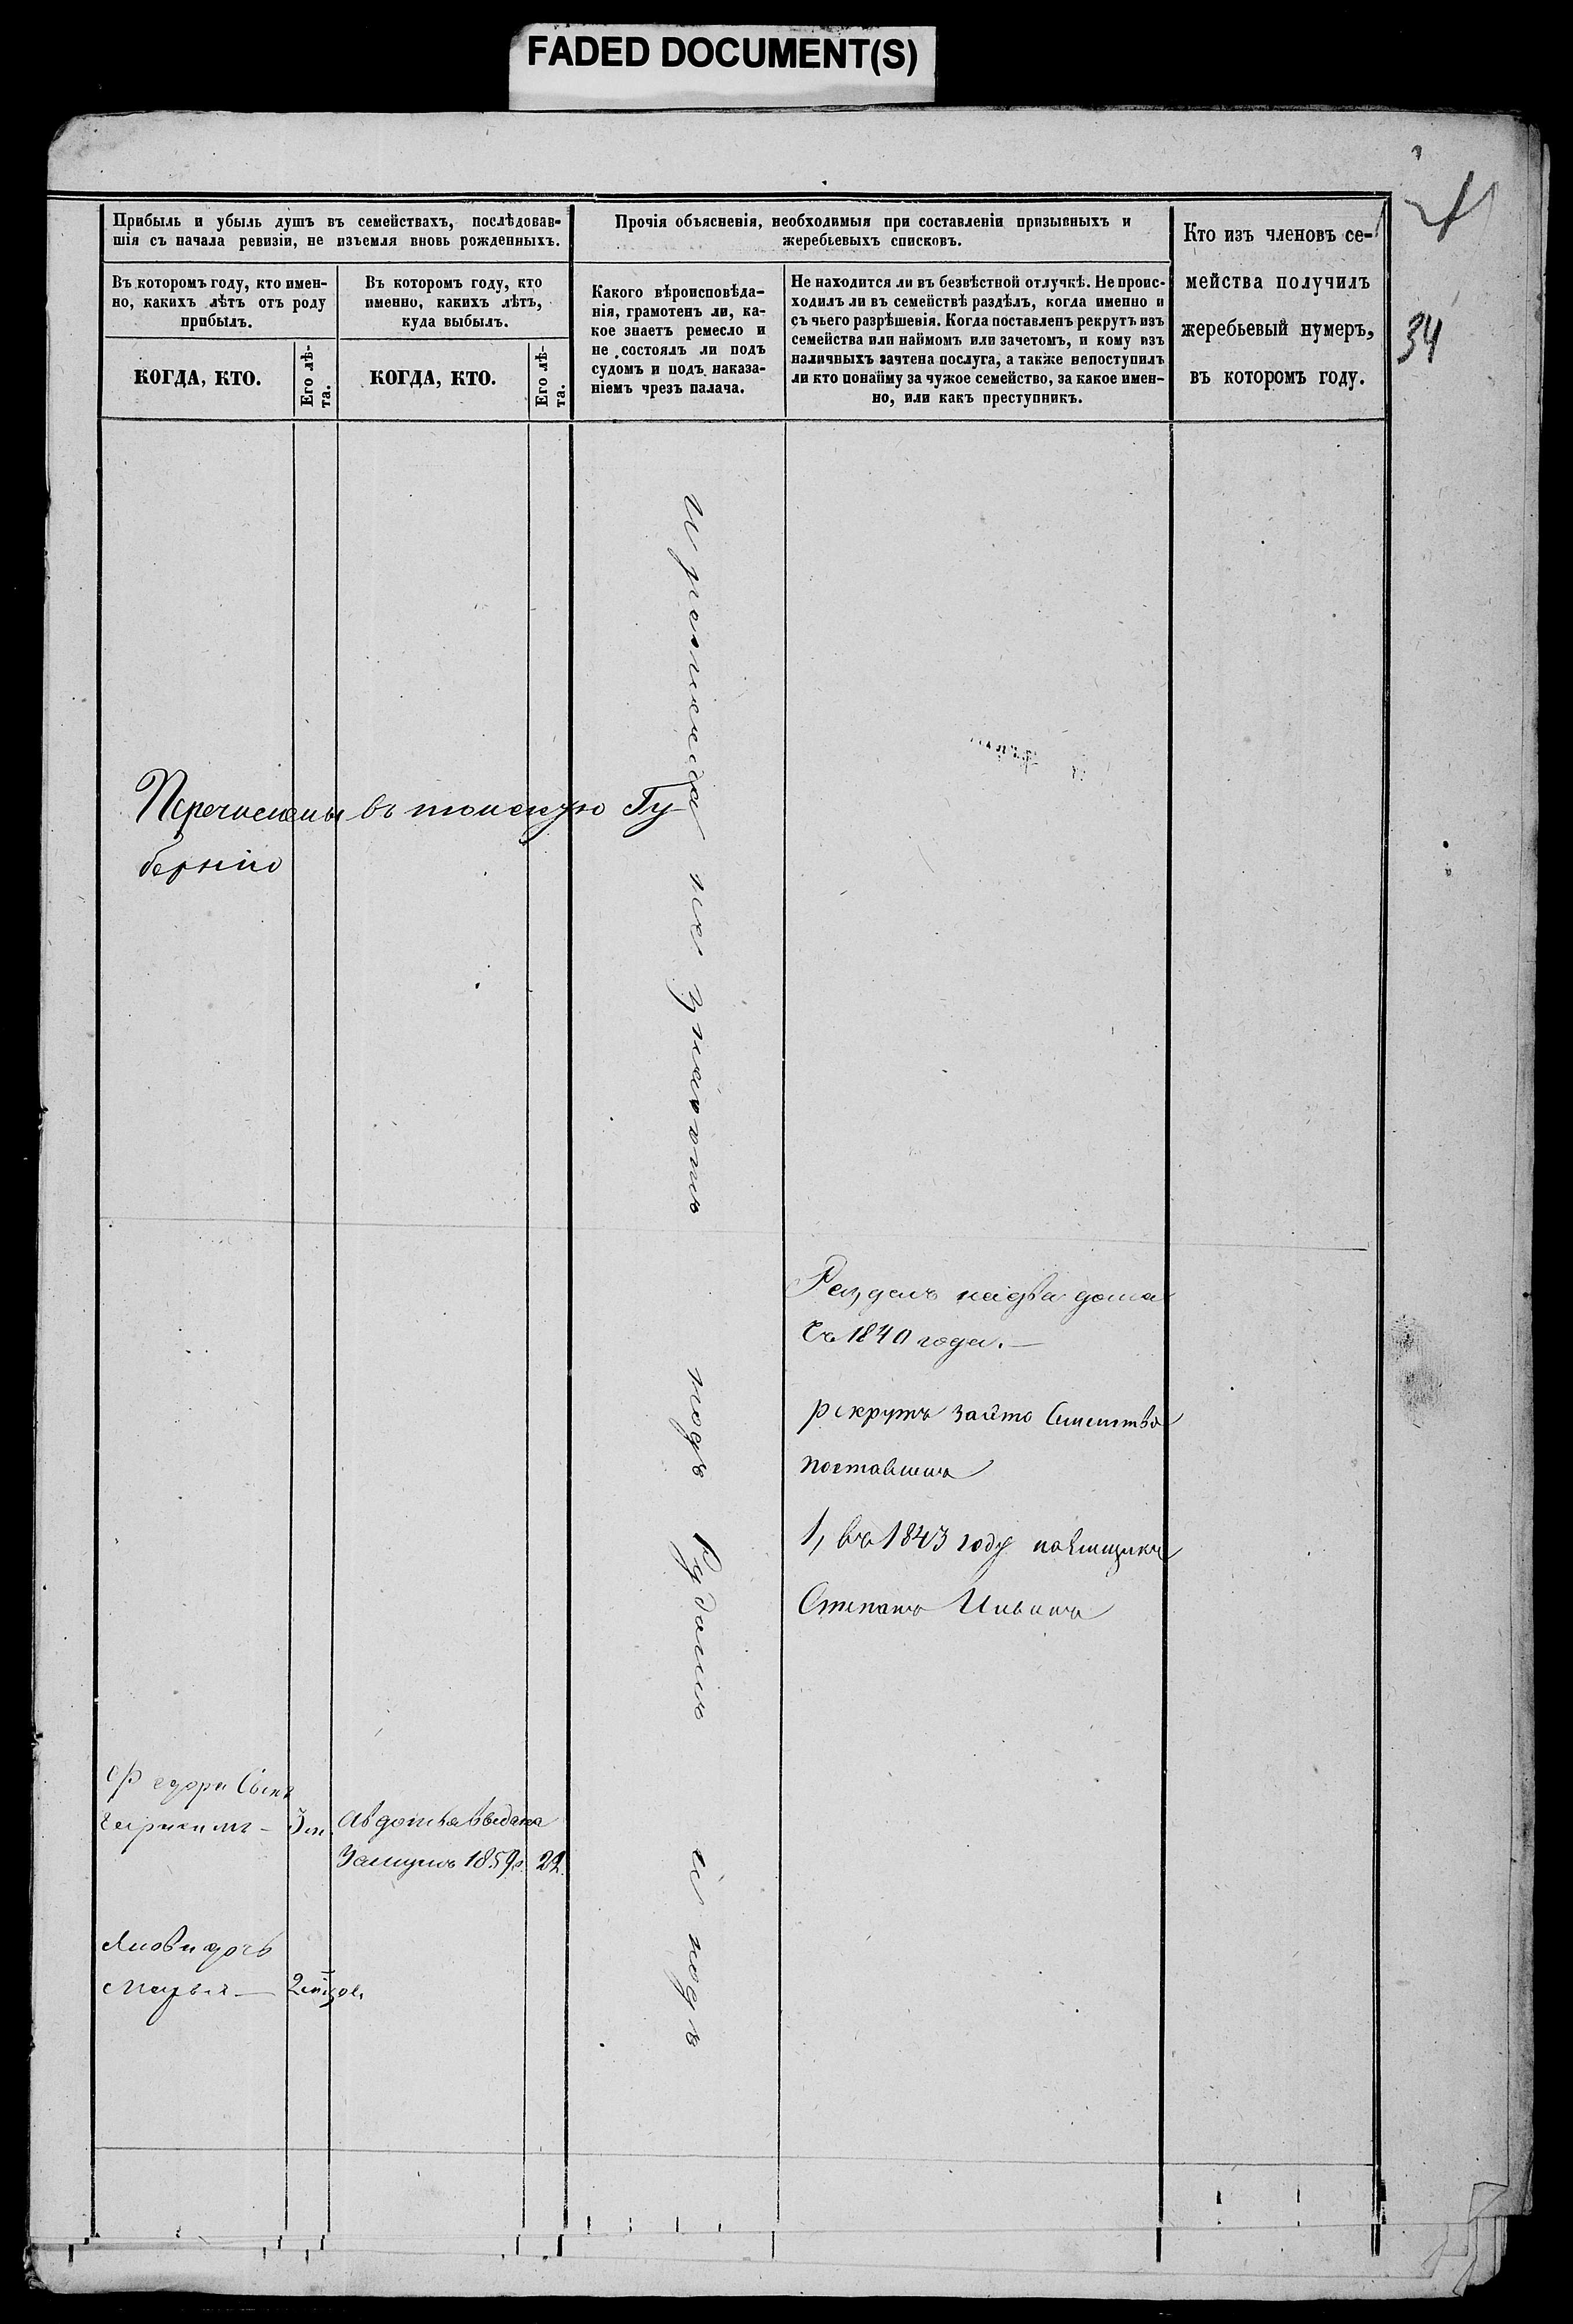 FADED DOCUMENT(S)
34
Прибыль и убыль душъ въ семействахъ, послѣдовав-
шія съ начала ревизіи, не изъемля вновь рожденныхъ.
Въ которомъ году, кто имен-
но, какихъ лѣтъ отъ роду
прибылъ.
КОГДА, КТО.
Его лѣ-
та.
Въ которомъ году, кто
именно, какихъ лѣтъ,
куда выбылъ.
КОГДА, КТО.
Его лѣ-
та.
Прочія объясненія, необходимыя при составленіи призывныхъ и
жеребьевыхъ списковъ.
Какого вѣроисповѣда-
нія, грамотенъ ли, ка-
кое знаетъ ремесло и
не состоялъ ли подъ
судомъ и подъ наказа-
ніемъ чрезъ палача.
Не находится ли въ безвѣстной отлучкѣ. Не проис-
ходилъ ли въ семействѣ раздѣлъ, когда именно и
съ чьего разрѣшенія. Когда поставленъ рекрутъ изъ
семейства или наймомъ или зачетомъ, и кому изъ
наличныхъ зачтена послуга, а также непоступилъ
ли кто понайму за чужое семейство, за какое имен-
но, или какъ преступникъ.
Кто изъ членовъ се-
мейства получилъ
жеребьевый нумеръ,
въ которомъ году.
Перечислены въ томскую Гу-
бернію
не знаютъ подъ Судомъ и подъ
Раздѣлъ на два дома
Съ 1840 года.
рекрутъ за это Семейство
поставленъ
1, въ 1843 году
Степанъ
Федора Сынъ
3 м.
Авдотья выдана
Замужъ 1859 г. 22.
дочь
Марья